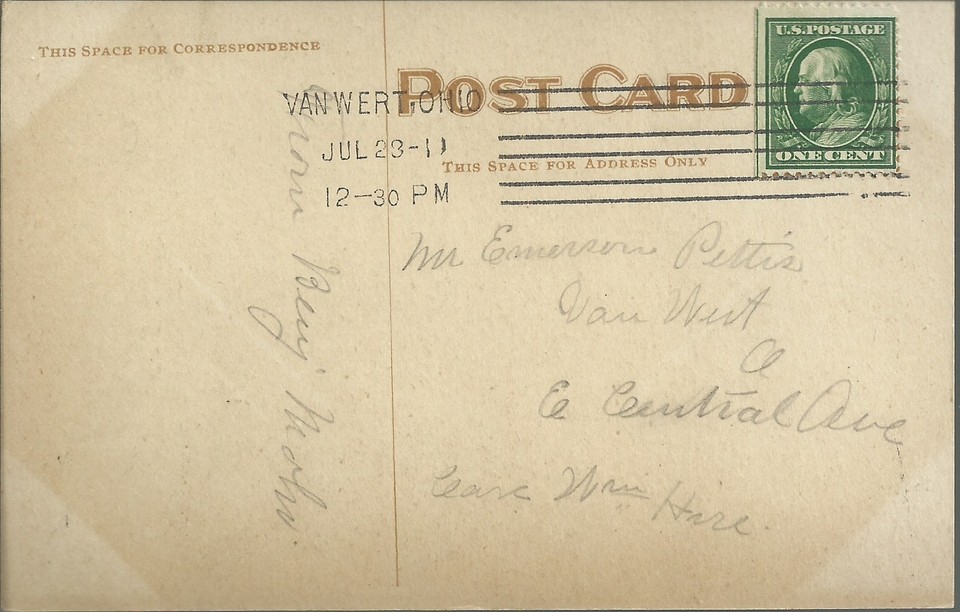 THIS SPACE FOR CORRESPONDENCE
POST CARD
U.S. POSTAGE
ONE CENT
VAN WERT, OHIO
JUL 23-11
12-30 PM
THIS SPACE FOR ADDRESS ONLY
From Benj
Mr Emerson Pettis
Van Wert
O
E Central Ave
Care Wm Hire.